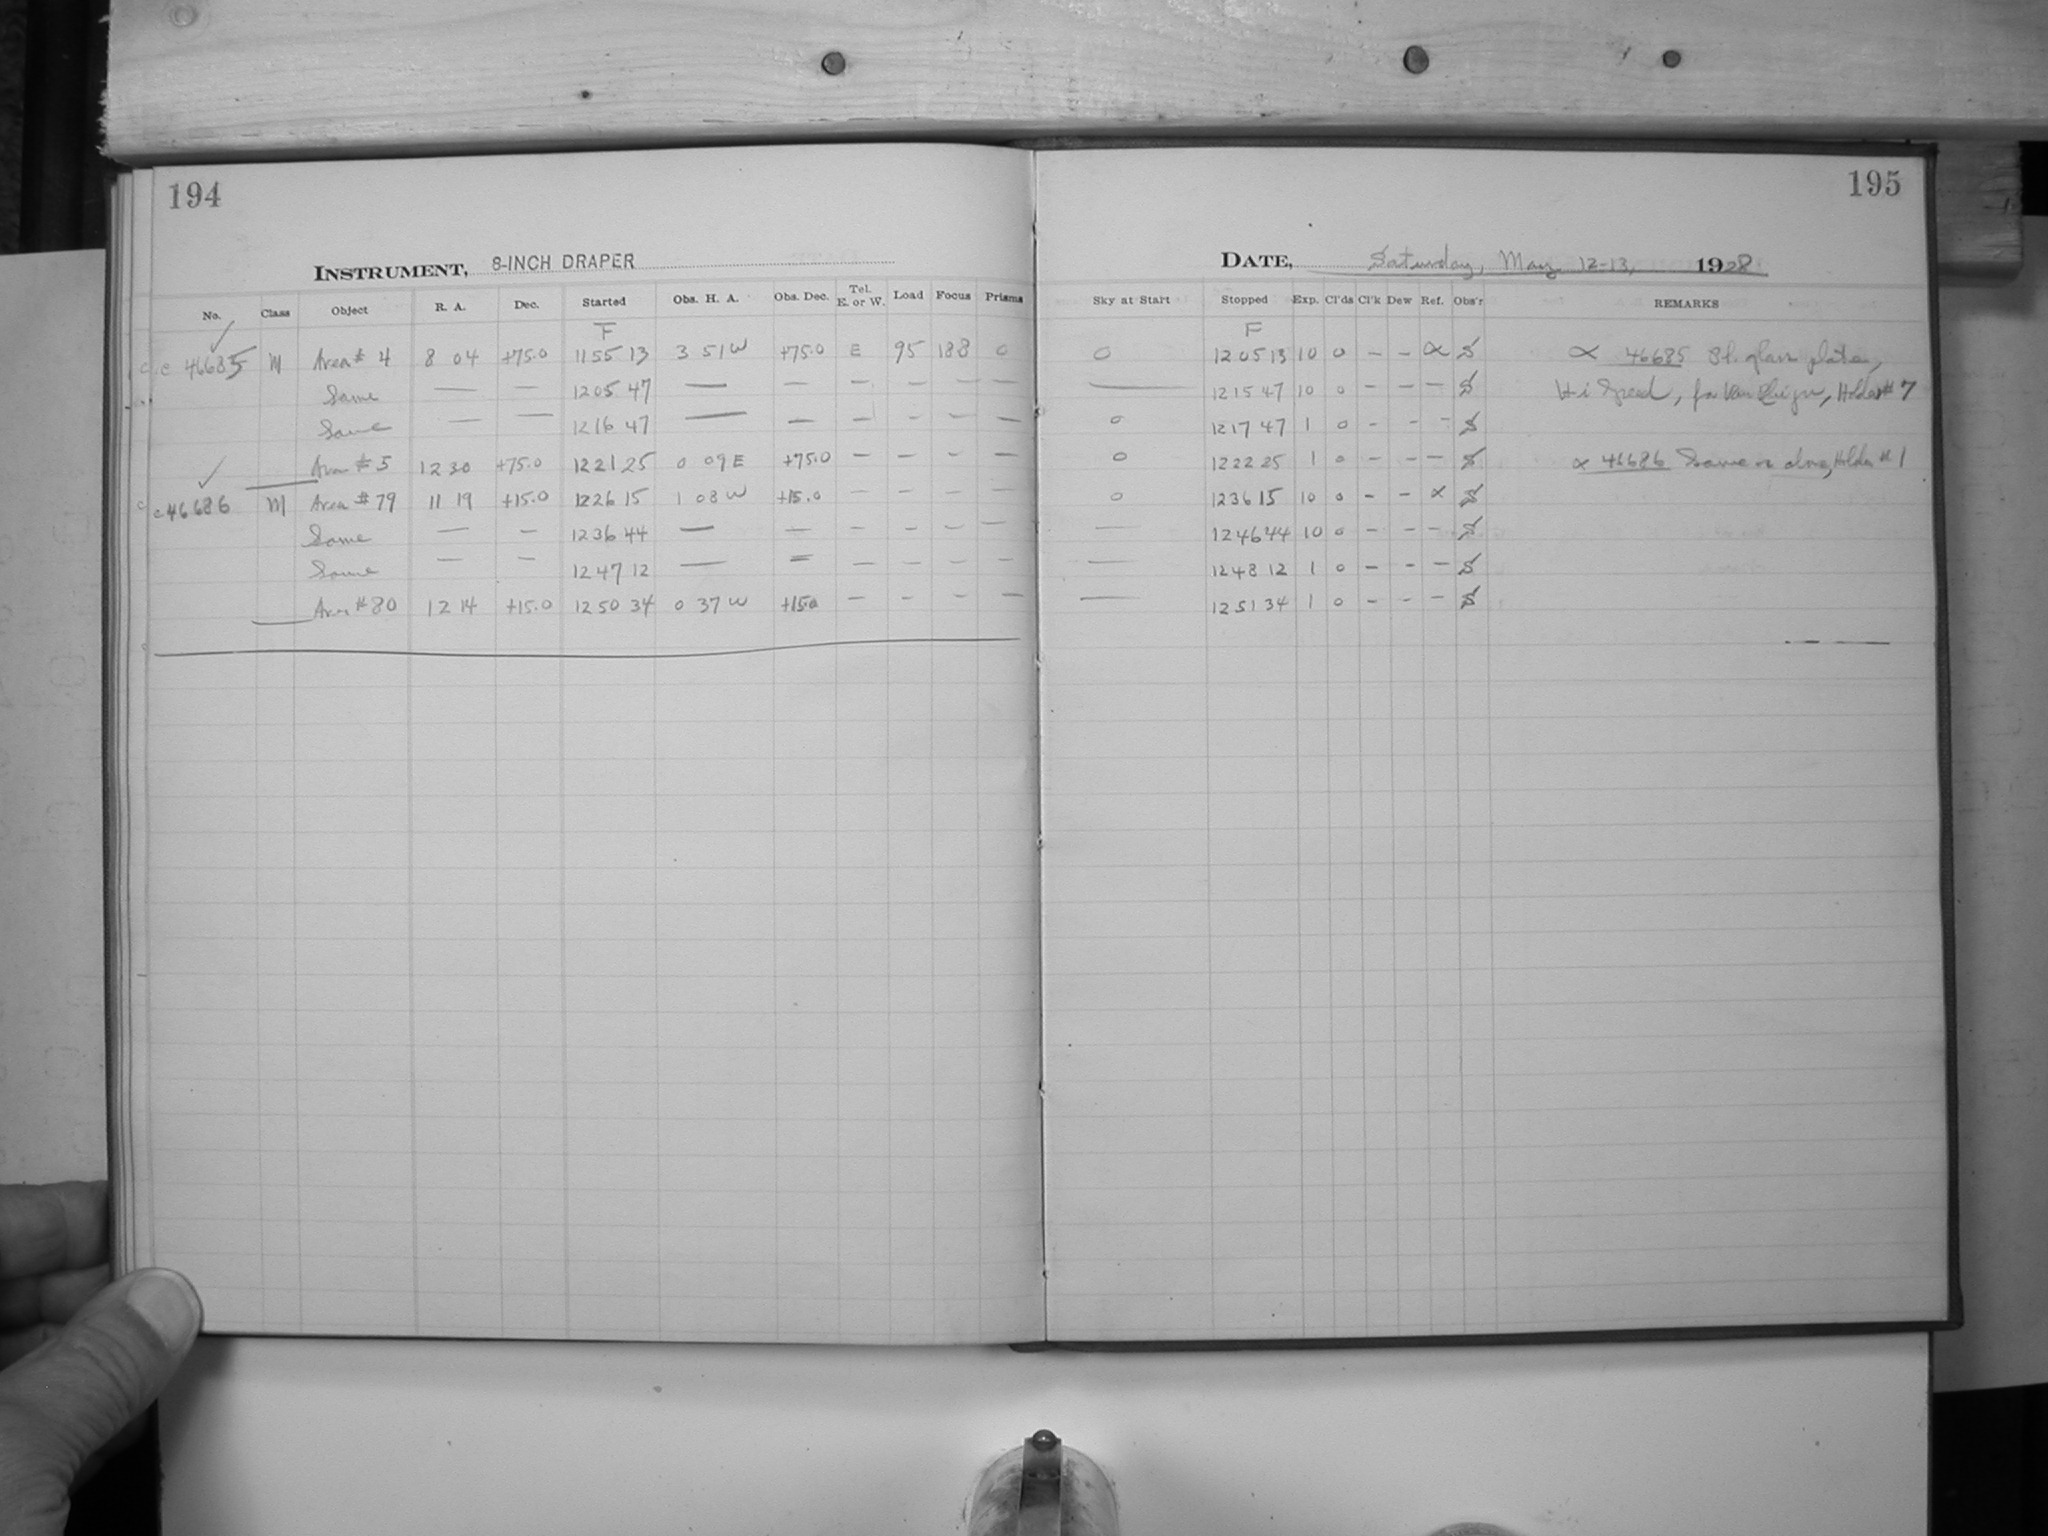 194
INSTRUMENT, 8-INCH DRAPER
No. Class Object R. A. Dec. Started Obs. H. A. Obs. Dec. Tel. E. or W. Load Focus Prisms
F
c 46685 M Area # 4 8 04 +75.0 11 55 13 3 51 W +75.0 E 95 188 0
Same — — 12 05 47 — — — — — —
Same — — 12 16 47 — — — — — —
Area # 5 12 30 +75.0 12 21 25 0 09 E +75.0 — — — —
c 46686 M Area # 79 11 19 +15.0 12 26 15 1 08 W +15.0 — — — —
Same — — 12 36 44 — — — — — —
Same — — 12 47 12 — — — — — —
Area # 80 12 14 +15.0 12 50 34 0 37 W +15.0 — — — —
195
DATE, Saturday, May 12-13, 1928
Sky at Start Stopped Exp. Cl'ds Cl'k Dew Ref. Obs'r REMARKS
F
0 12 05 13 10 0 – – α S α 46685 glass plate,
— 12 15 47 10 0 – – – S Hi Speed, for Holder # 7
0 12 17 47 1 0 – – – S
0 12 22 25 1 0 – – – S α 46686 Same as above, Holder # 1
0 12 36 15 10 0 – – α S
— 12 46 44 10 0 – – – S
— 12 48 12 1 0 – – – S
— 12 51 34 1 0 – – – S